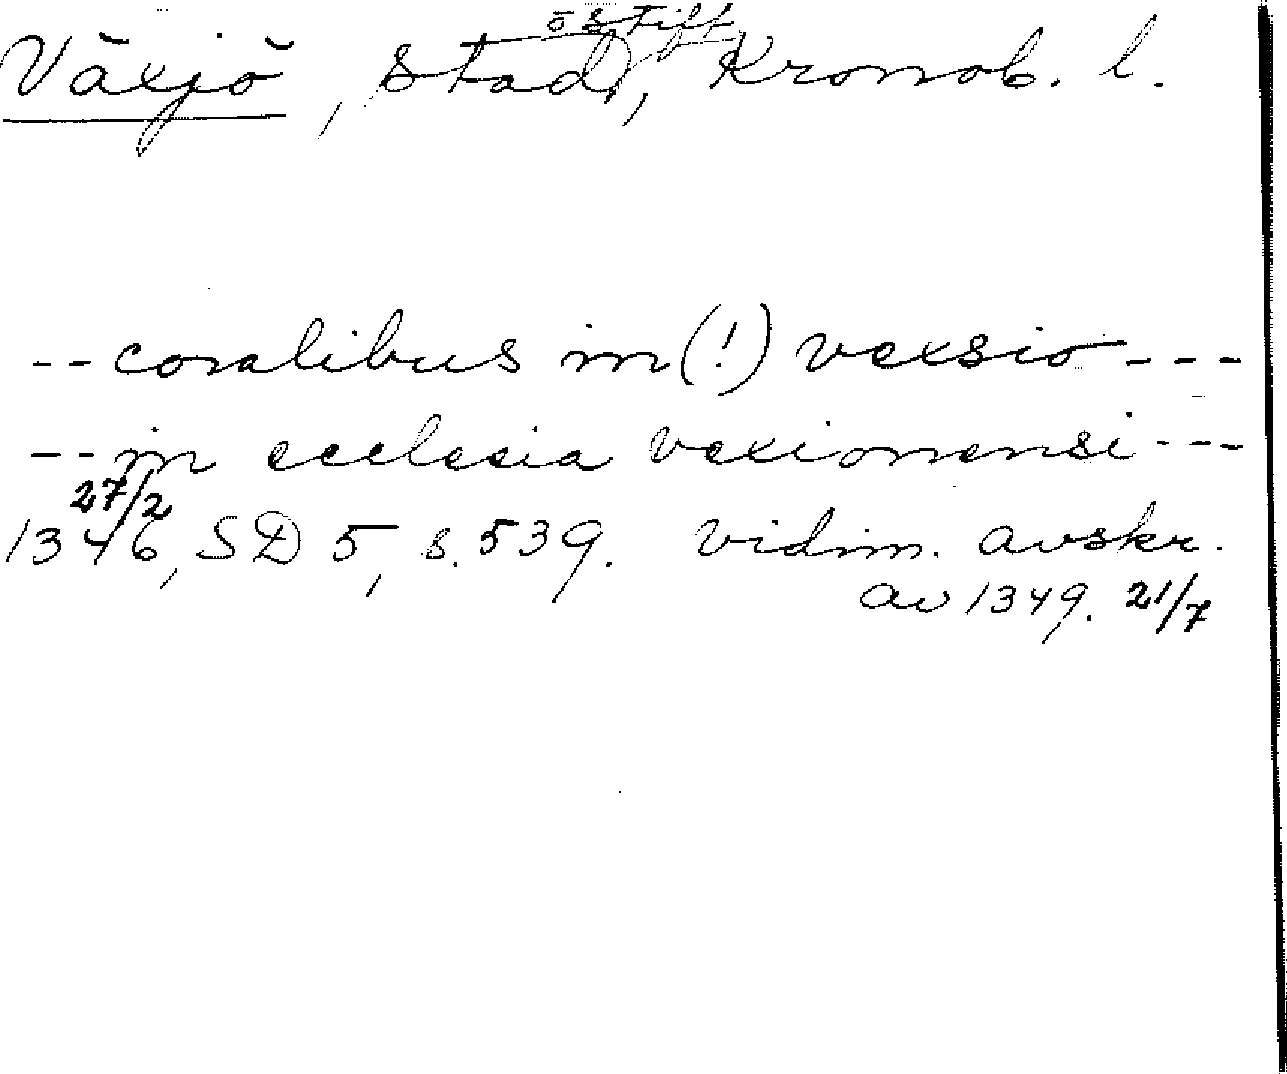 Växjö, stad, o stift, Kronob. l.
-- coralibus in (!) vexsio ---
-- in ecclesia vexionensi ---
27/2
1346, SD 5, s. 539. vidim. avskr.
av 1349. 21/7